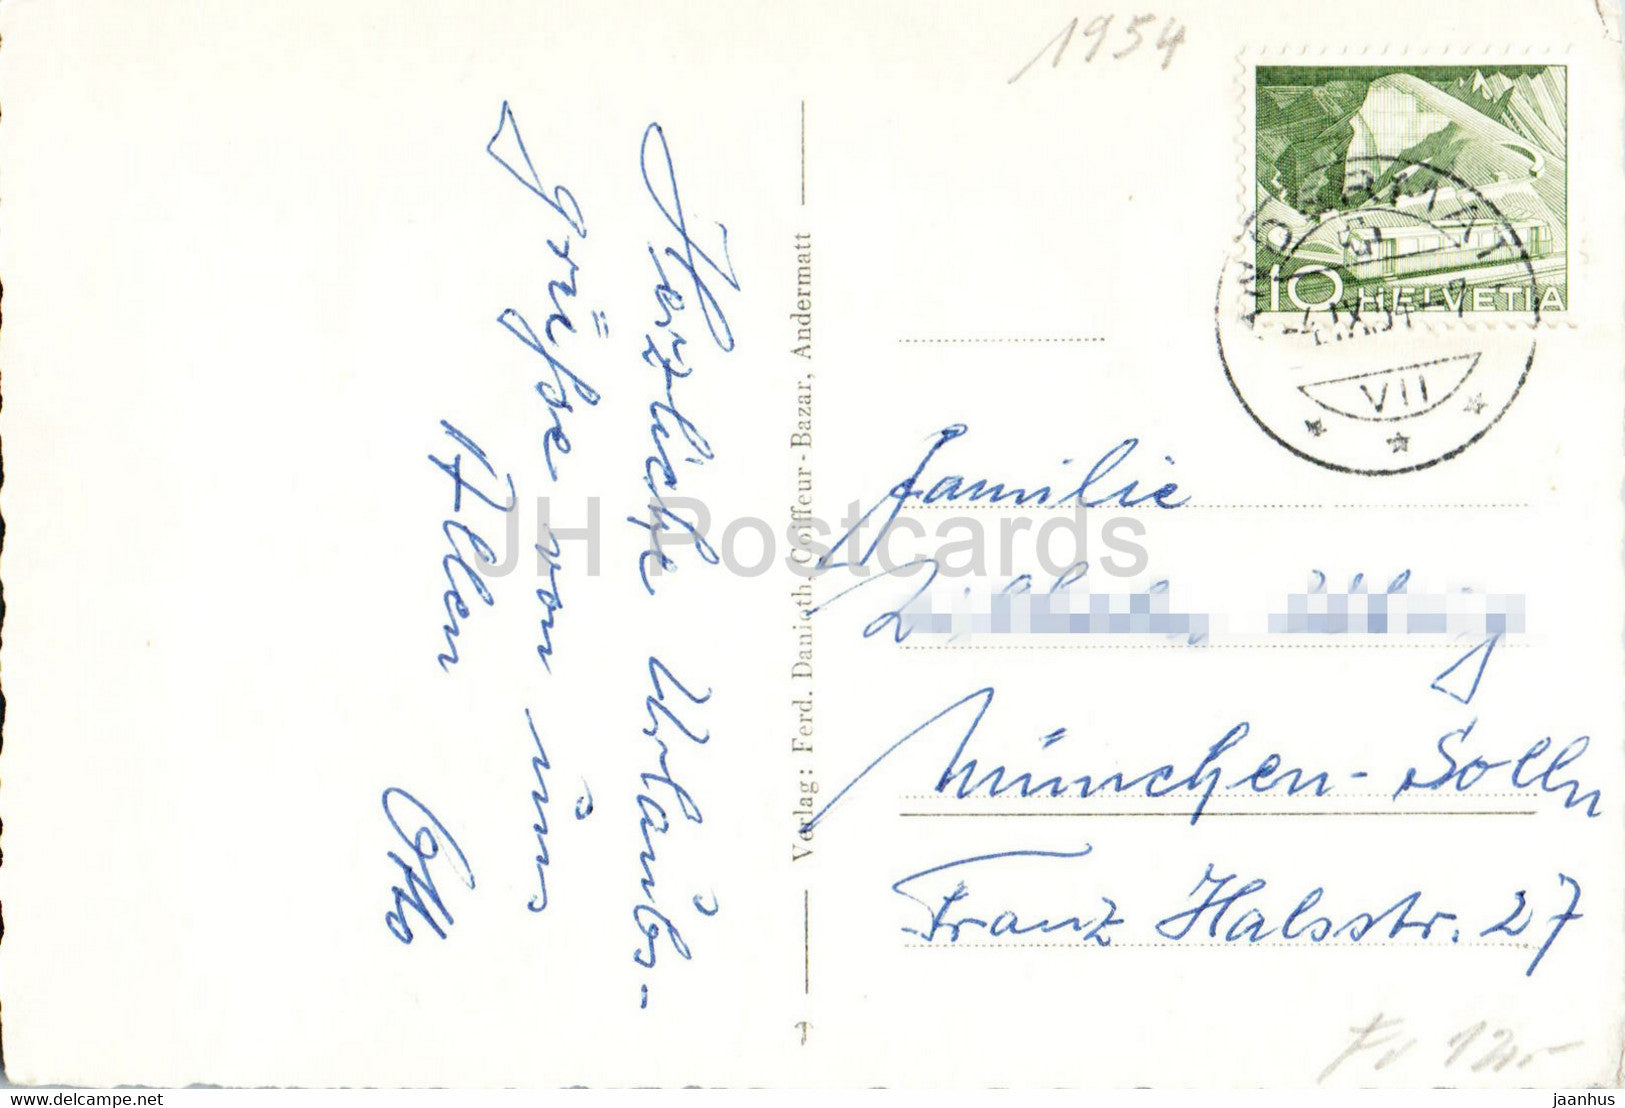 1954
10 HELVETIA
ANDERMATT
4.IX.54-7
VII
Herzliche Urlaubs-
grüße von uns
Allen
Otto
Verlag: Ferd. Danioth, Coiffeur-Bazar, Andermatt
Familie
München-Solln
Franz Halsstr. 27
JH Postcards
www.delcampe.net
jaanhus